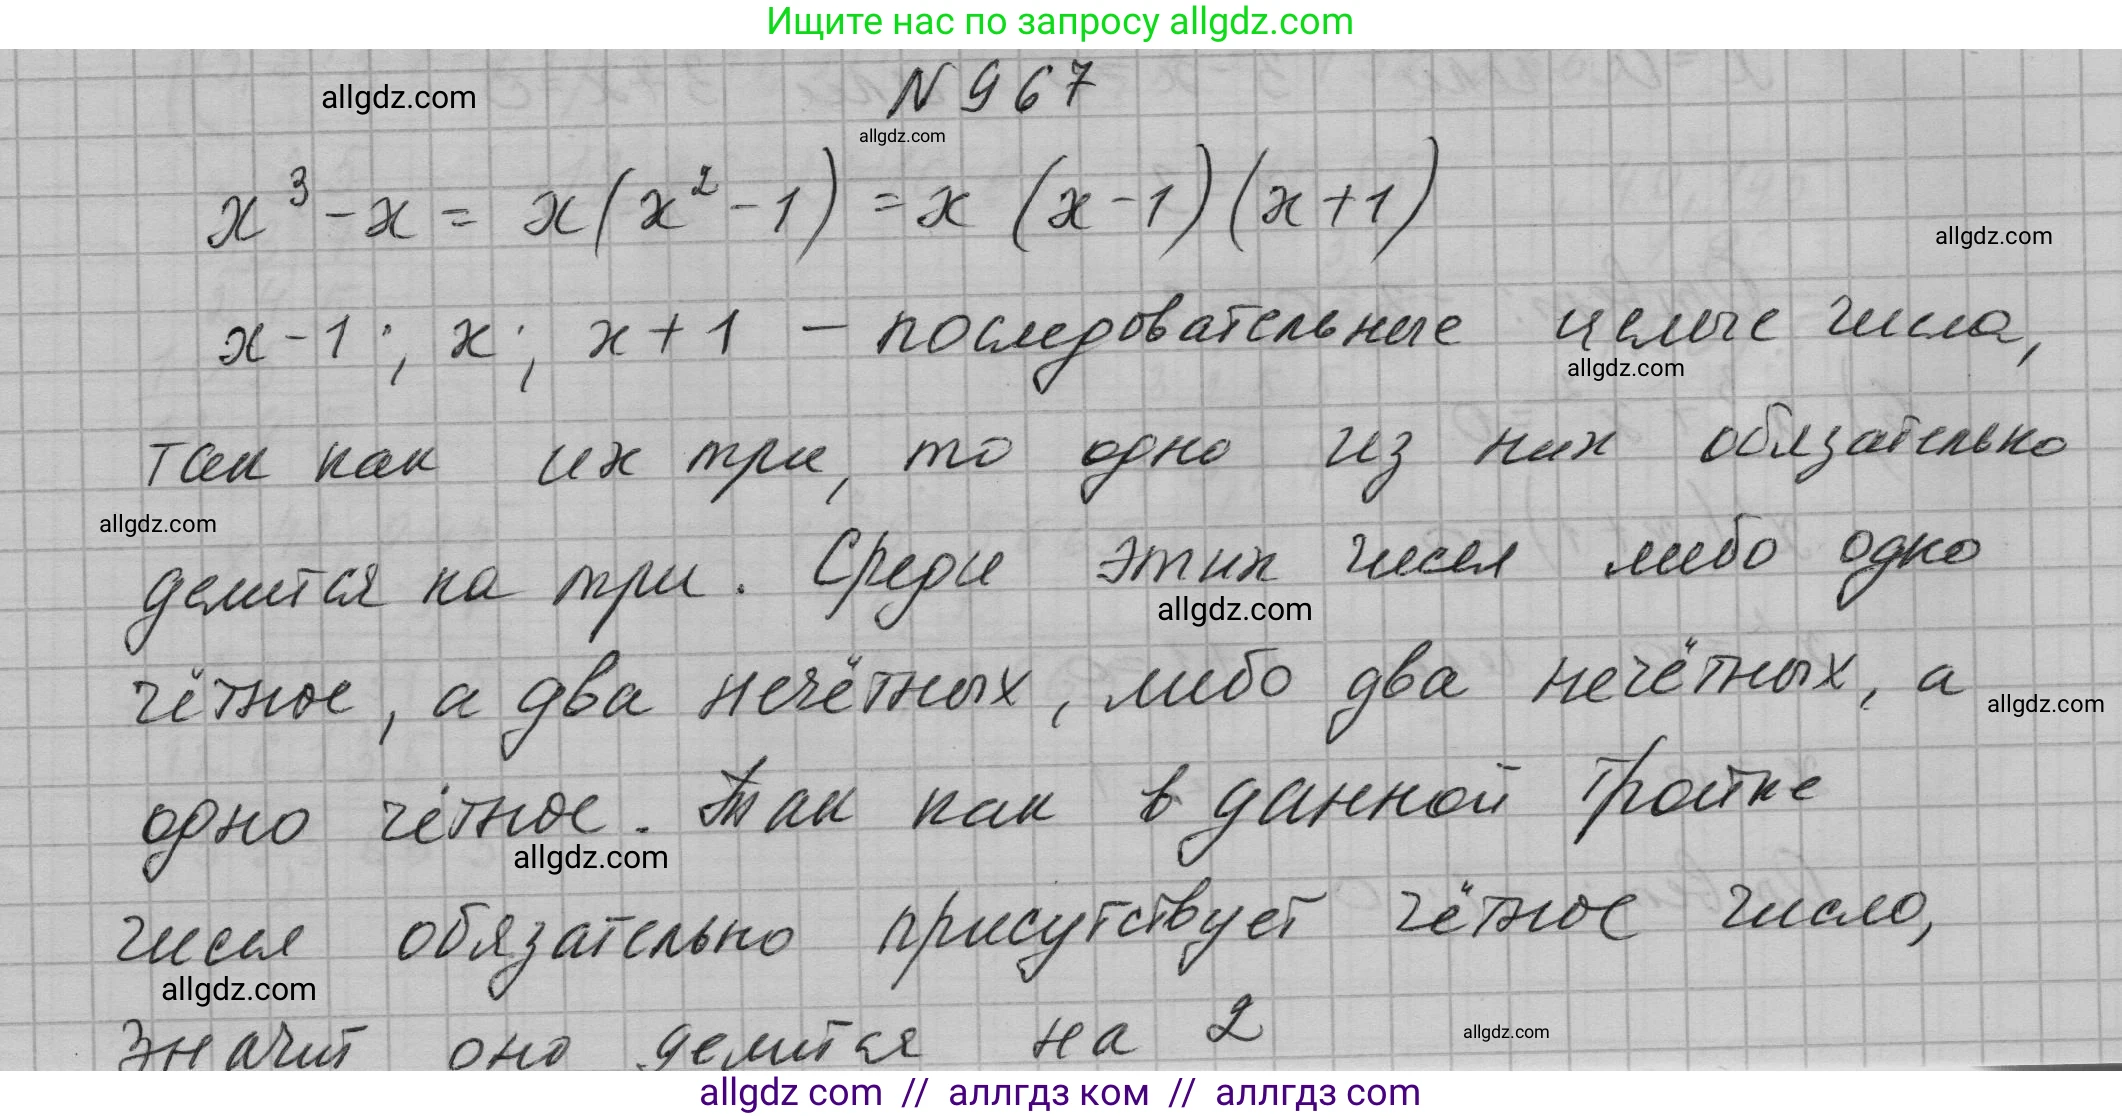 Ищите нас по запросу allgdz.com
N 967
allgdz.com
allgdz.com
x³ - x = x(x² - 1) = x (x - 1) (x + 1)
allgdz.com
x - 1; x; x + 1 — последовательные целые числа,
allgdz.com
так как их три, то одно из них обязательно
allgdz.com
делится на три. Среди этих чисел либо одно
allgdz.com
чётное, а два нечётных, либо два нечётных, а
allgdz.com
одно чётное. Так как в данной тройке
allgdz.com
чисел обязательно присутствует чётное число,
allgdz.com
значит оно делится на 2
allgdz.com
allgdz com // аллгдз ком // аллгдз com